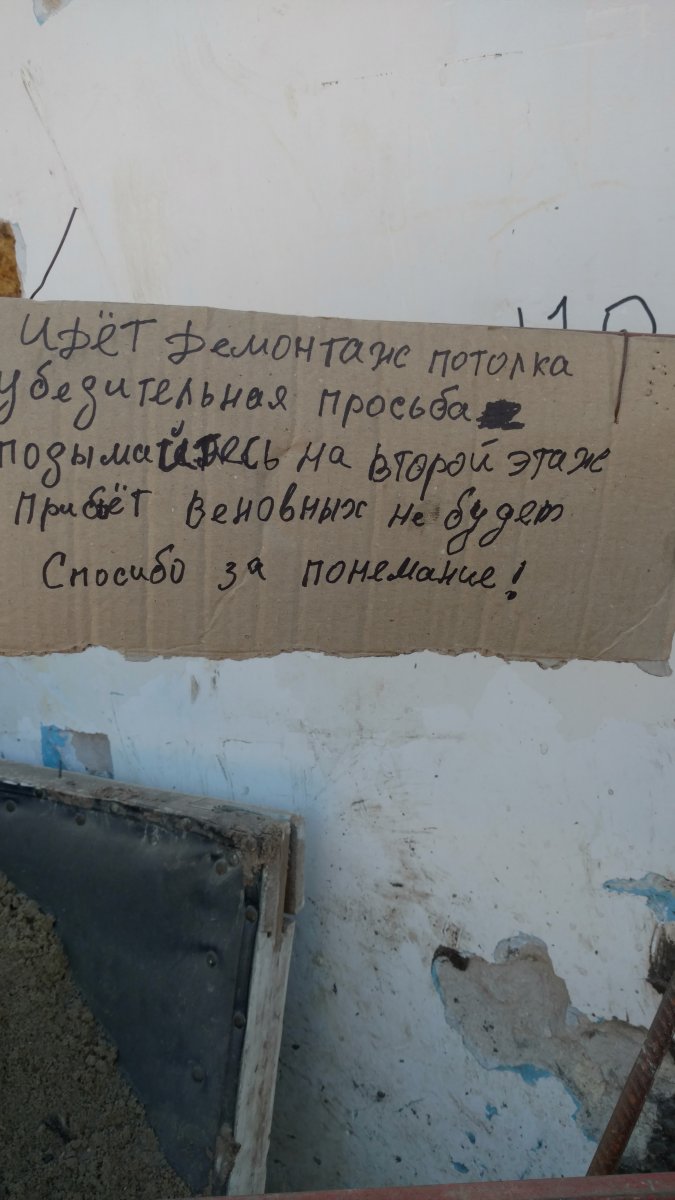 идёт демонтаж потолка
убедительная просьба
подымайтесь на второй этаж
Прибьёт веновных не будет
Спосибо за понемание!